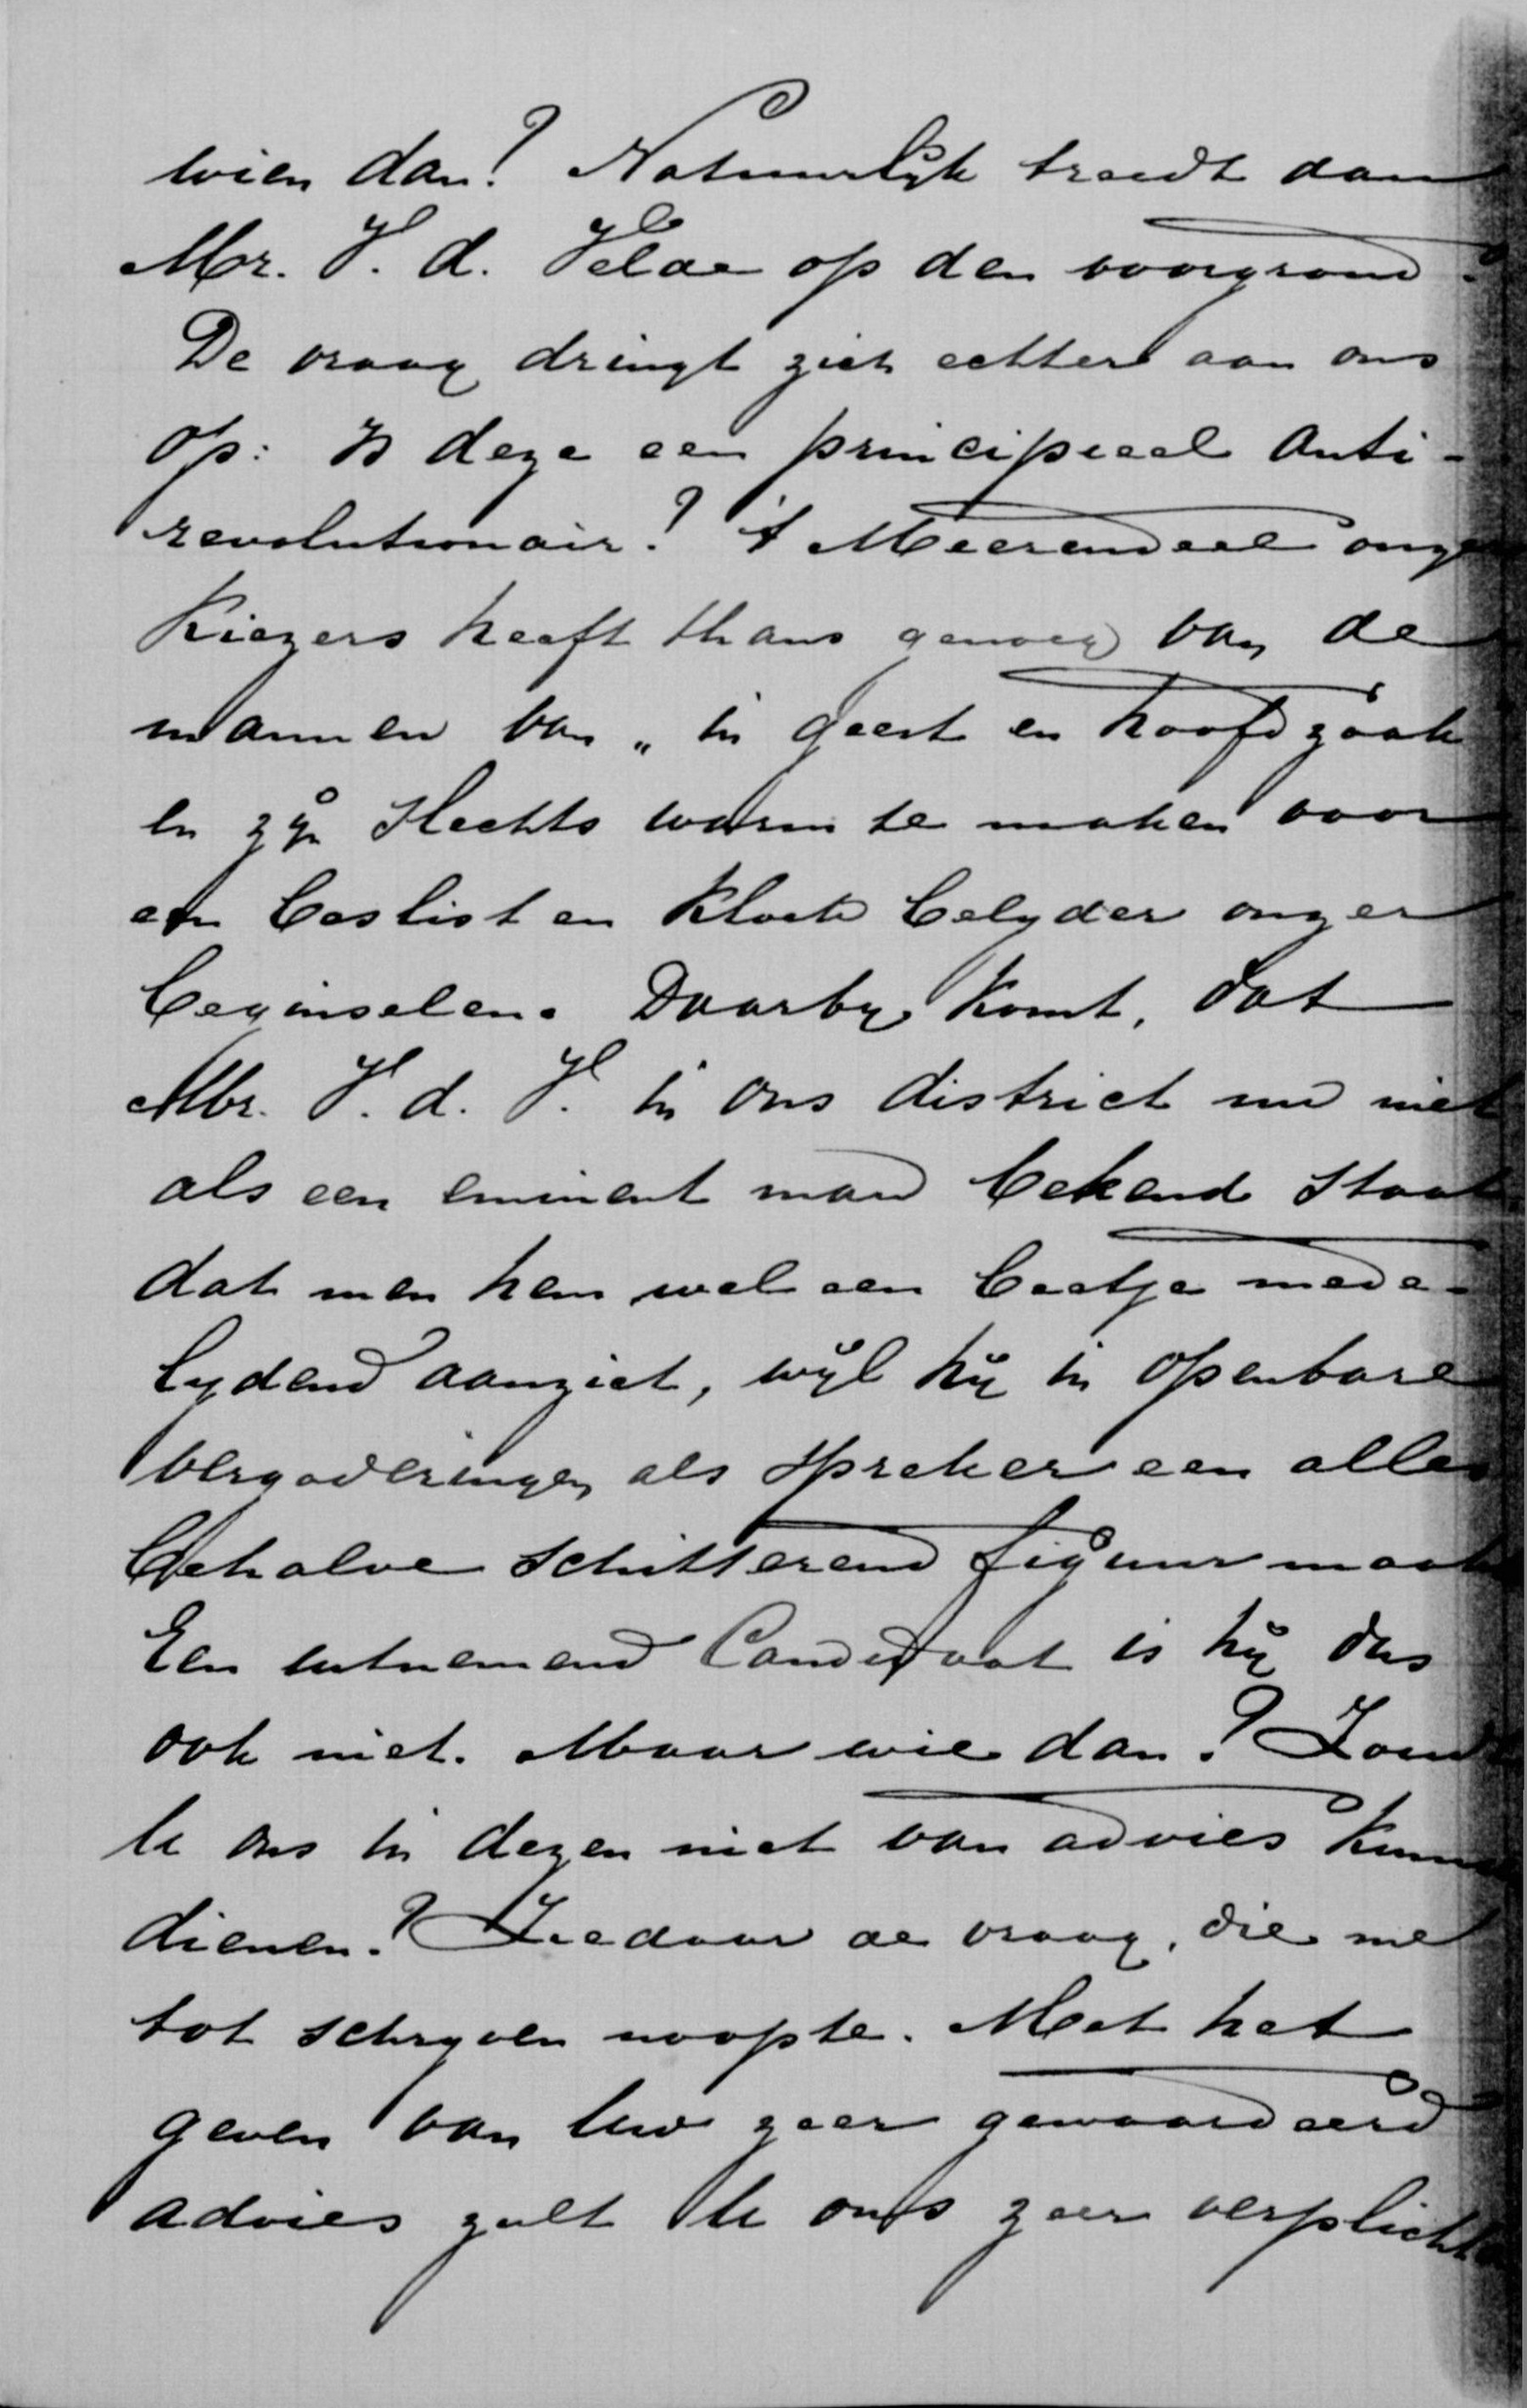 wien dan? Natuurlijk treedt dan
Mr. V. d. Velde op den voorgrond.
De vraag dringt zich echter aan ons
op: Is deze een principieel Anti-
revolutionair? 't Meerendeel onzer
Kiezers heeft thans genoeg van de
mannen van „in geest en hoofdzaak
en zijn slechts warm te maken voor
een beslist en kloek belyder onzer
beginselen. Daarby komt, dat
Mr. V. d. V. in ons district nu niet
als een eminent man bekend staat
dat men hem wel een beetje mede-
lydend aanziet, wijl hij in openbare
vergaderingen als spreker een alles
behalve schitterend figuur maakt
Een uitnemend Candidaat is hij dus
ook niet. Maar wie dan? Zoudt
U ons in dezen niet van advies kunnen
dienen? Ziedaar de vraag, die me
tot schryven noopte. Met het
geven van Uw zeer gewaardeerd
advies zult U ons zeer verplichten